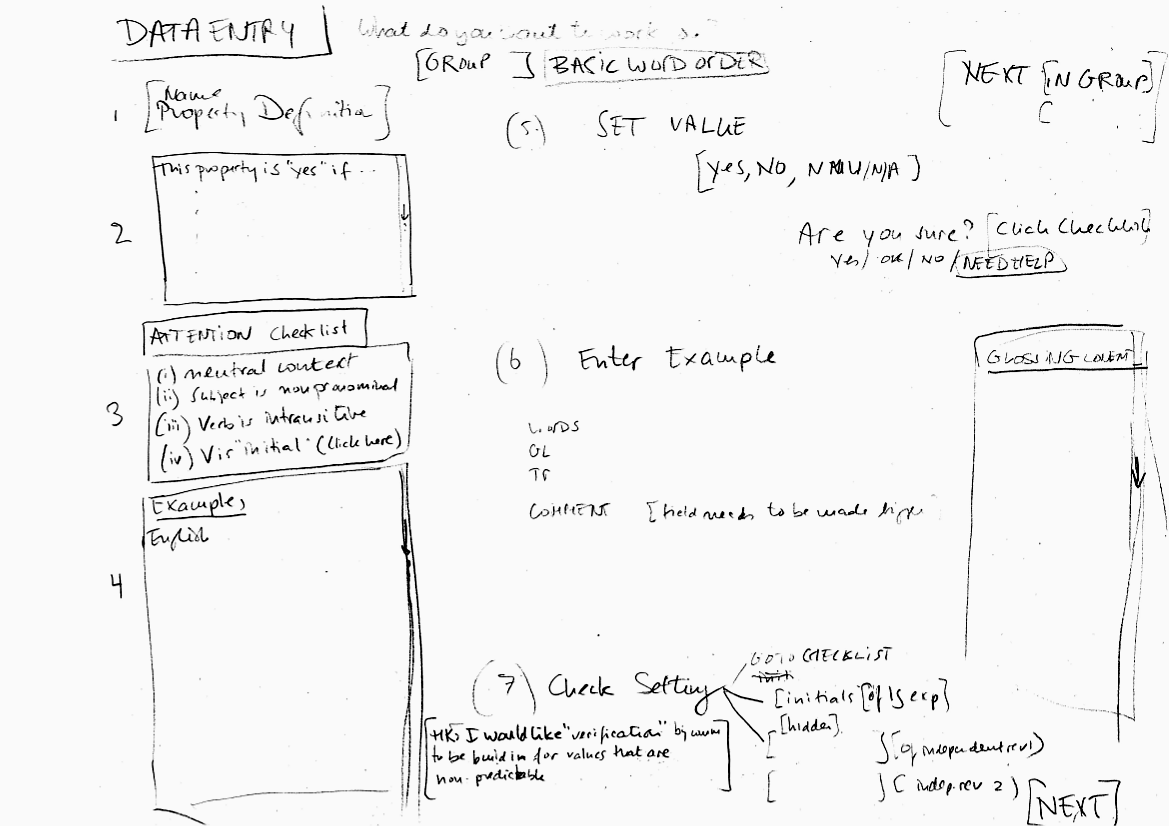 DATA ENTRY
What do you want to work
[GROUP ] BASIC WORD ORDER
[NEXT [IN GROUP]
1 [Name
Property Definition]
(5.) SET VALUE
[Yes, NO, N/A]
2
This property is "yes" if ..
Are you sure? [Click Checklist]
Yes / OK / NO / NEED HELP
3
ATTENTION Checklist
(i) neutral context
(ii) Subject is non pronominal
(iii) Verb is intransitive
(iv) V is "initial" (Click here)
4
Examples
English
(6) Enter Example
WORDS
GL
TR
COMMENT [field needs to be made
GLOSSING
(7) Check Setting
GO TO CHECKLIST
[initials [of LS exp]
[hidden]
[ ] (of independent rev 1)
[ ] ( indep. rev 2)
[HK: I would like "verification" by
to be build in for values that are
non-predictable]
[NEXT]